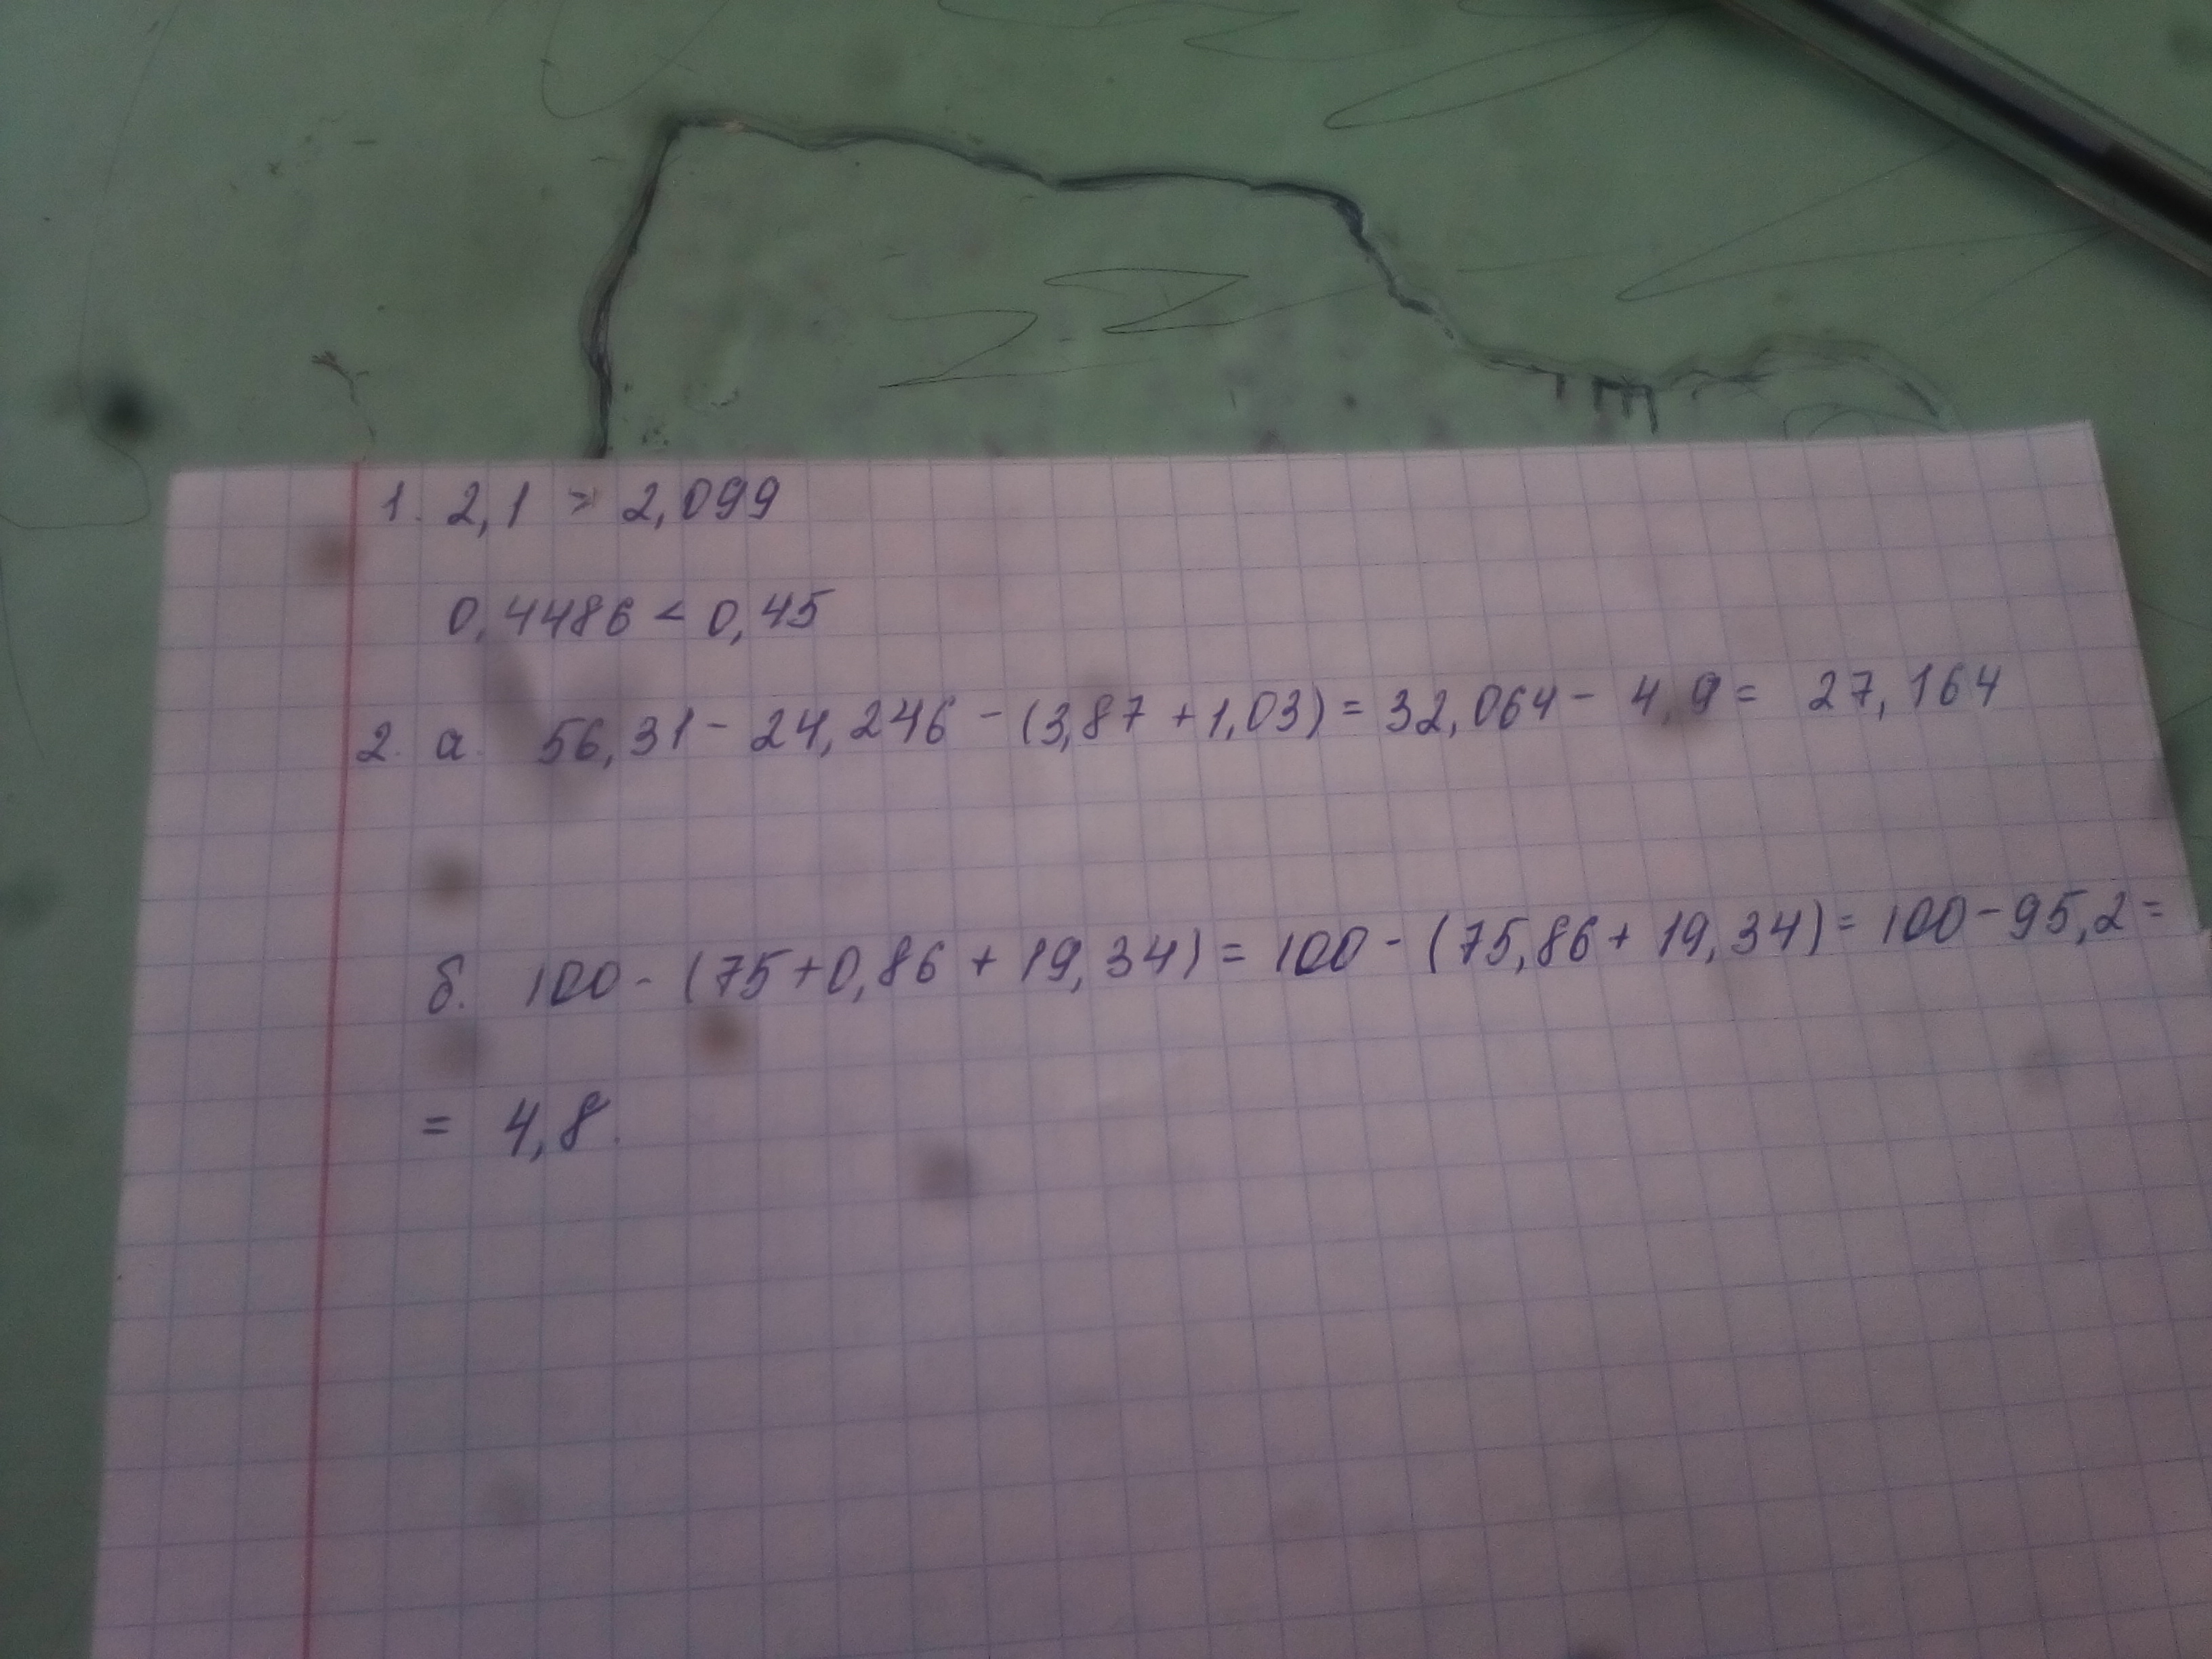 1. 2,1 > 2,099
0,4486 < 0,45
2. а. 56,31 - 24,246 - (3,87 + 1,03) = 32,064 - 4,9 = 27,164
б. 100 - (75 + 0,86 + 19,34) = 100 - (75,86 + 19,34) = 100 - 95,2 =
= 4,8.